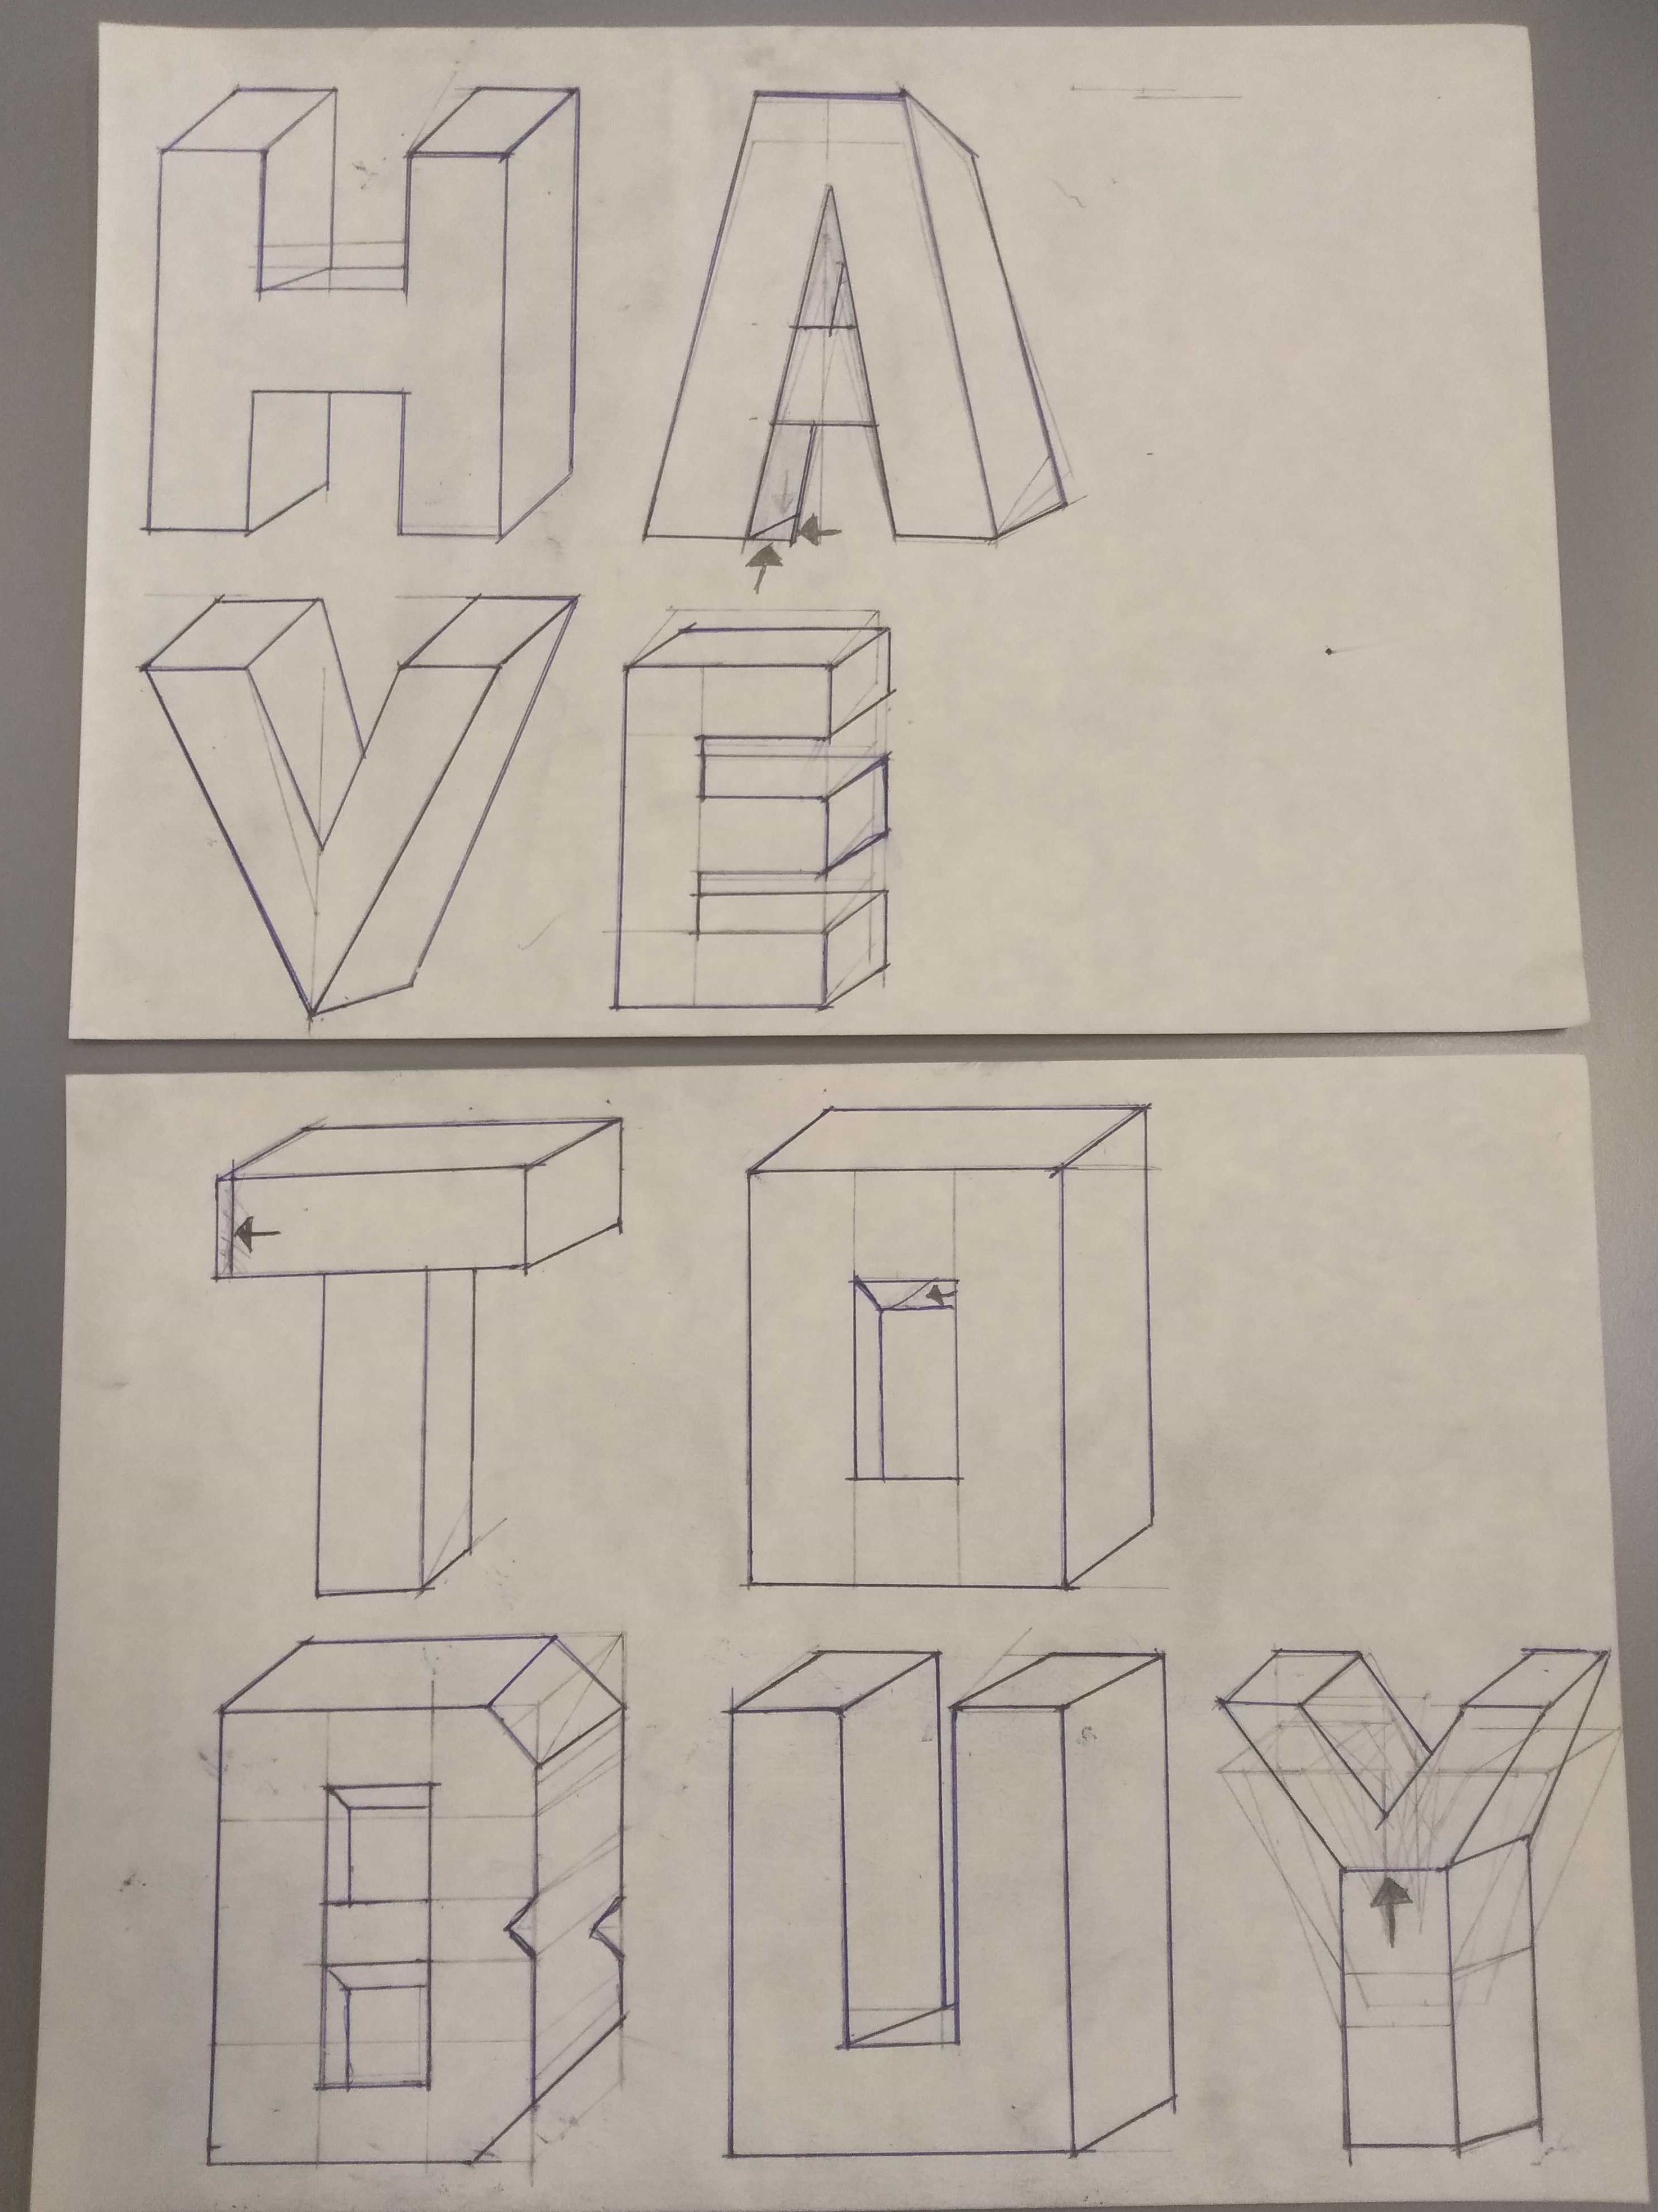 HA
VE
TO
BUY